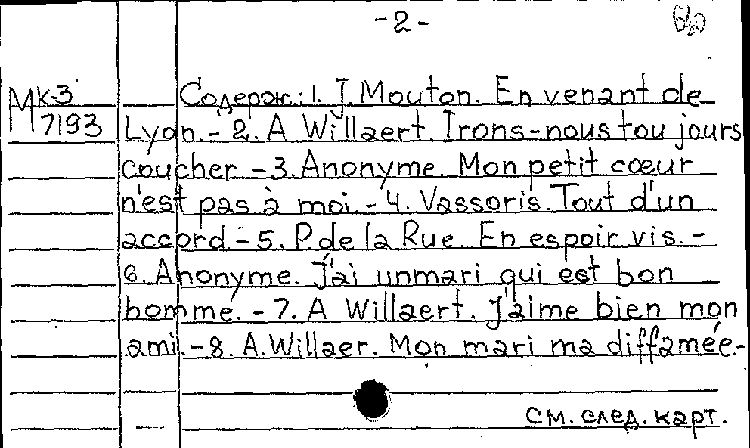 -2-
МК-3
7193
Содерж.: 1. J. Mouton. En venant de
Lyon. - 2. A Willaert. Irons-nous tou jours
coucher - 3. Anonyme. Mon petit cœur
n'est pas à moi. - 4. Vassoris. Tout d'un
accord - 5. P. de la Rue. En espoir vis. -
6. Anonyme. J'ai unmari qui est bon
homme. - 7. A Willaert. J'aime bien mon
ami. - 8. A. Willaer. Mon mari ma diffamée. -
См. след. карт.